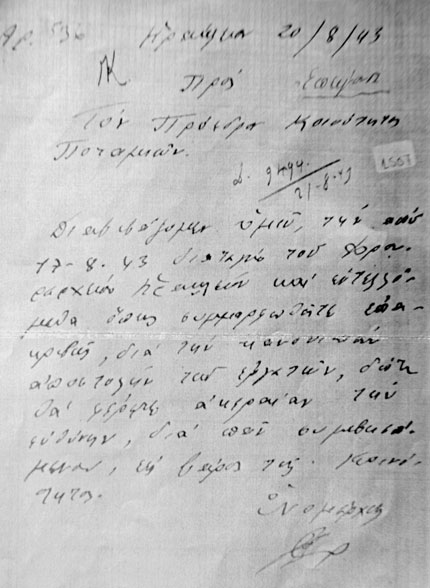 Ἀρ. 536 Ἡράκλειον 20/8/43
Πρός
Τόν Πρόεδρον Κοινότητος
Ποταμιῶν.
9494.
21-8-43
Διαβιβάζομεν ὑμῖν, τήν ἀπό
17-8-43 διαταγήν τοῦ Φρου-
ραρχείου Ἡρακλείου καί ἐντελλό-
μεθα ὅπως συμμορφωθῆτε ἐπα-
κριβῶς, διά τήν κανονικήν
ἀποστολήν τῶν ἐργατῶν, διότι
θά φέρητε ἀκεραίαν τήν
εὐθύνην, διά πᾶν συμβησό-
μενον, εἰς βάρος τῆς Κοινό-
τητος.
Ὁ Νομάρχης